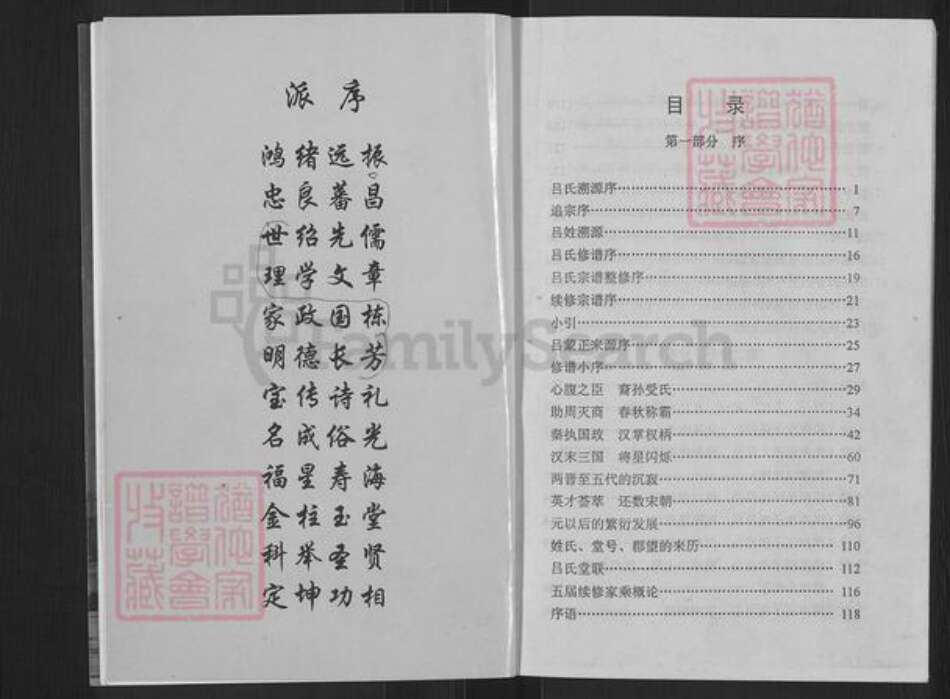 派序
鸿绪远振
忠良蕃昌
世绍先儒
理学文章
家政国栋
明德长芳
宝传诗礼
名成俗光
福星寿海
金柱玉堂
科举圣贤
定坤功相
目录
第一部分 序
吕氏溯源序 1
追宗序 7
吕姓溯源 11
吕氏修谱序 16
吕氏宗谱整修序 19
续修宗谱序 21
小引 23
吕蒙正来源序 25
修谱小序 27
心腹之臣 裔孙受氏 29
助周灭商 春秋称霸 34
秦执国政 汉掌权柄 42
汉末三国 将星闪烁 60
两晋至五代的沉寂 71
英才荟萃 还数宋朝 81
元以后的繁衍发展 96
姓氏、堂号、郡望的来历 110
吕氏堂联 112
五届续修家乘概论 116
序语 118
FamilySearch